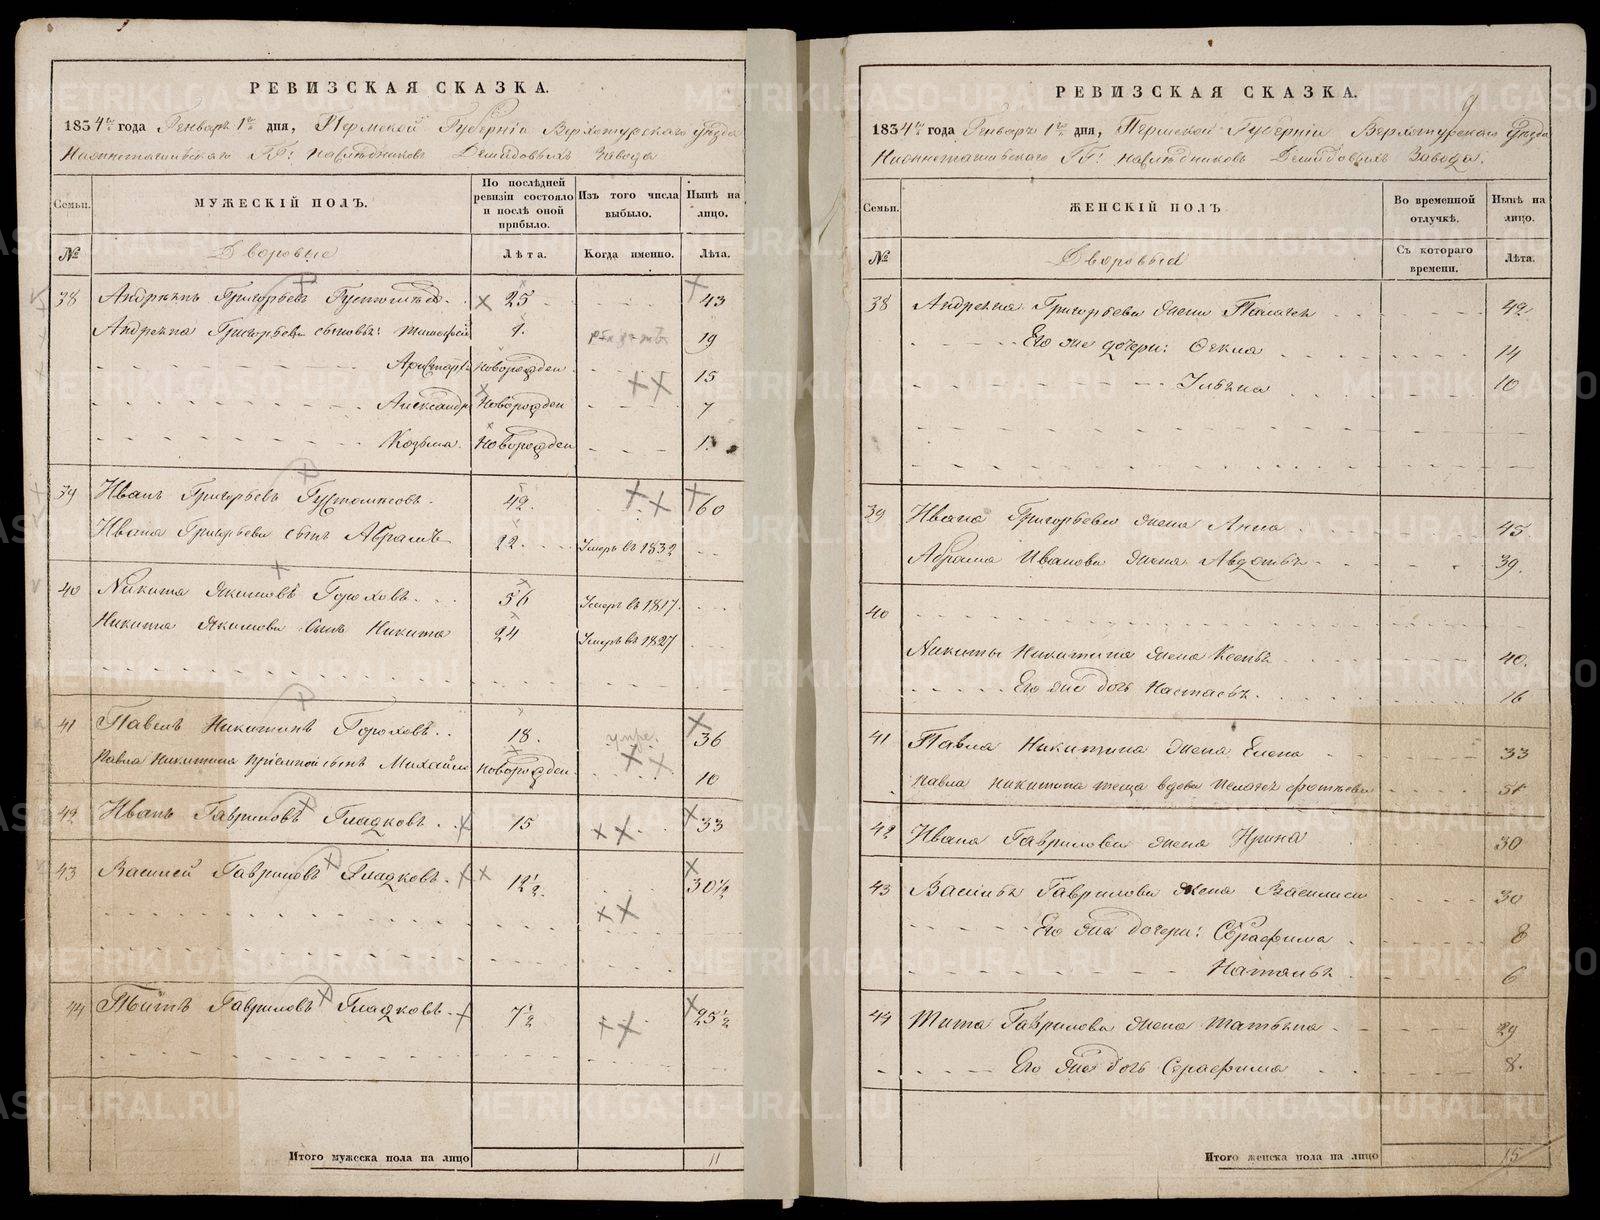 РЕВИЗСКАЯ СКАЗКА.
1834го года Генваря 1го дня, Пермской Губерніи Верхотурскаго уѣзда
Нижнетагильскаго ГГ: наслѣдниковъ Демидовыхъ Завода
Семьи.
МУЖЕСКІЙ ПОЛЪ.
По послѣдней ревизіи состояло и послѣ оной прибыло.
Изъ того числа выбыло.
Нынѣ на лицо.
№
Дворовые
Лѣта.
Когда именно.
Лѣта.
38 Андреянъ Григорьевъ 25 43
Андреяна Григорьева сыновья: Тимофей 1. 19
новорожден 15
Александръ Новорожден 7
Козьма Новорожден 1.
39 Иванъ Григорьевъ 42. 60
Ивана Григорьева сынъ Абрамъ 22. Умеръ въ 1832
40 Никита Якимовъ Гороховъ 56 Умеръ въ 1817.
Никиты Якимова сынъ Никита 24 Умеръ въ 1827
41 Павелъ Никитинъ Гороховъ. 18. 36
Павла Никитина пріемной сынъ Михайло новорожден. 10
42 Иванъ Гавриловъ Гладковъ. 15 33
43 Василей Гавриловъ Гладковъ. 12½. 30½
44 Титъ Гавриловъ Гладковъ. 7½ 25½
Итого мужеска пола на лицо 11
РЕВИЗСКАЯ СКАЗКА.
9
1834го года Генваря 1го дня, Пермской Губерніи Верхотурскаго уѣзда
Нижнетагильскаго ГГ: наслѣдниковъ Демидовыхъ Завода.
Семьи.
ЖЕНСКІЙ ПОЛЪ
Во временной отлучкѣ.
Нынѣ на лицо.
№
Дворовыя
Съ котораго времени.
Лѣта.
38 Андреяна Григорьева жена Пелагея 42
Его же дочери: Фекла 14
Ульяна 10
39 Ивана Григорьева жена Анна 45.
Абрама Иванова жена Авдотья 39.
40
Никиты Никитина жена 40.
Его же дочь Настасья. 16
41 Павла Никитина жена Елена 33
Павла Никитина теща вдова Пелагея 51
42 Ивана Гаврилова жена Ирина 30
43 Василья Гаврилова жена Василиса 30
Его же дочери: Серафима 8
Наталья 6
44 Тита Гаврилова жена Татьяна 29
Его же дочь Серафима 8.
Итого женска пола на лицо 15
METRIKI.GASO-URAL.RU